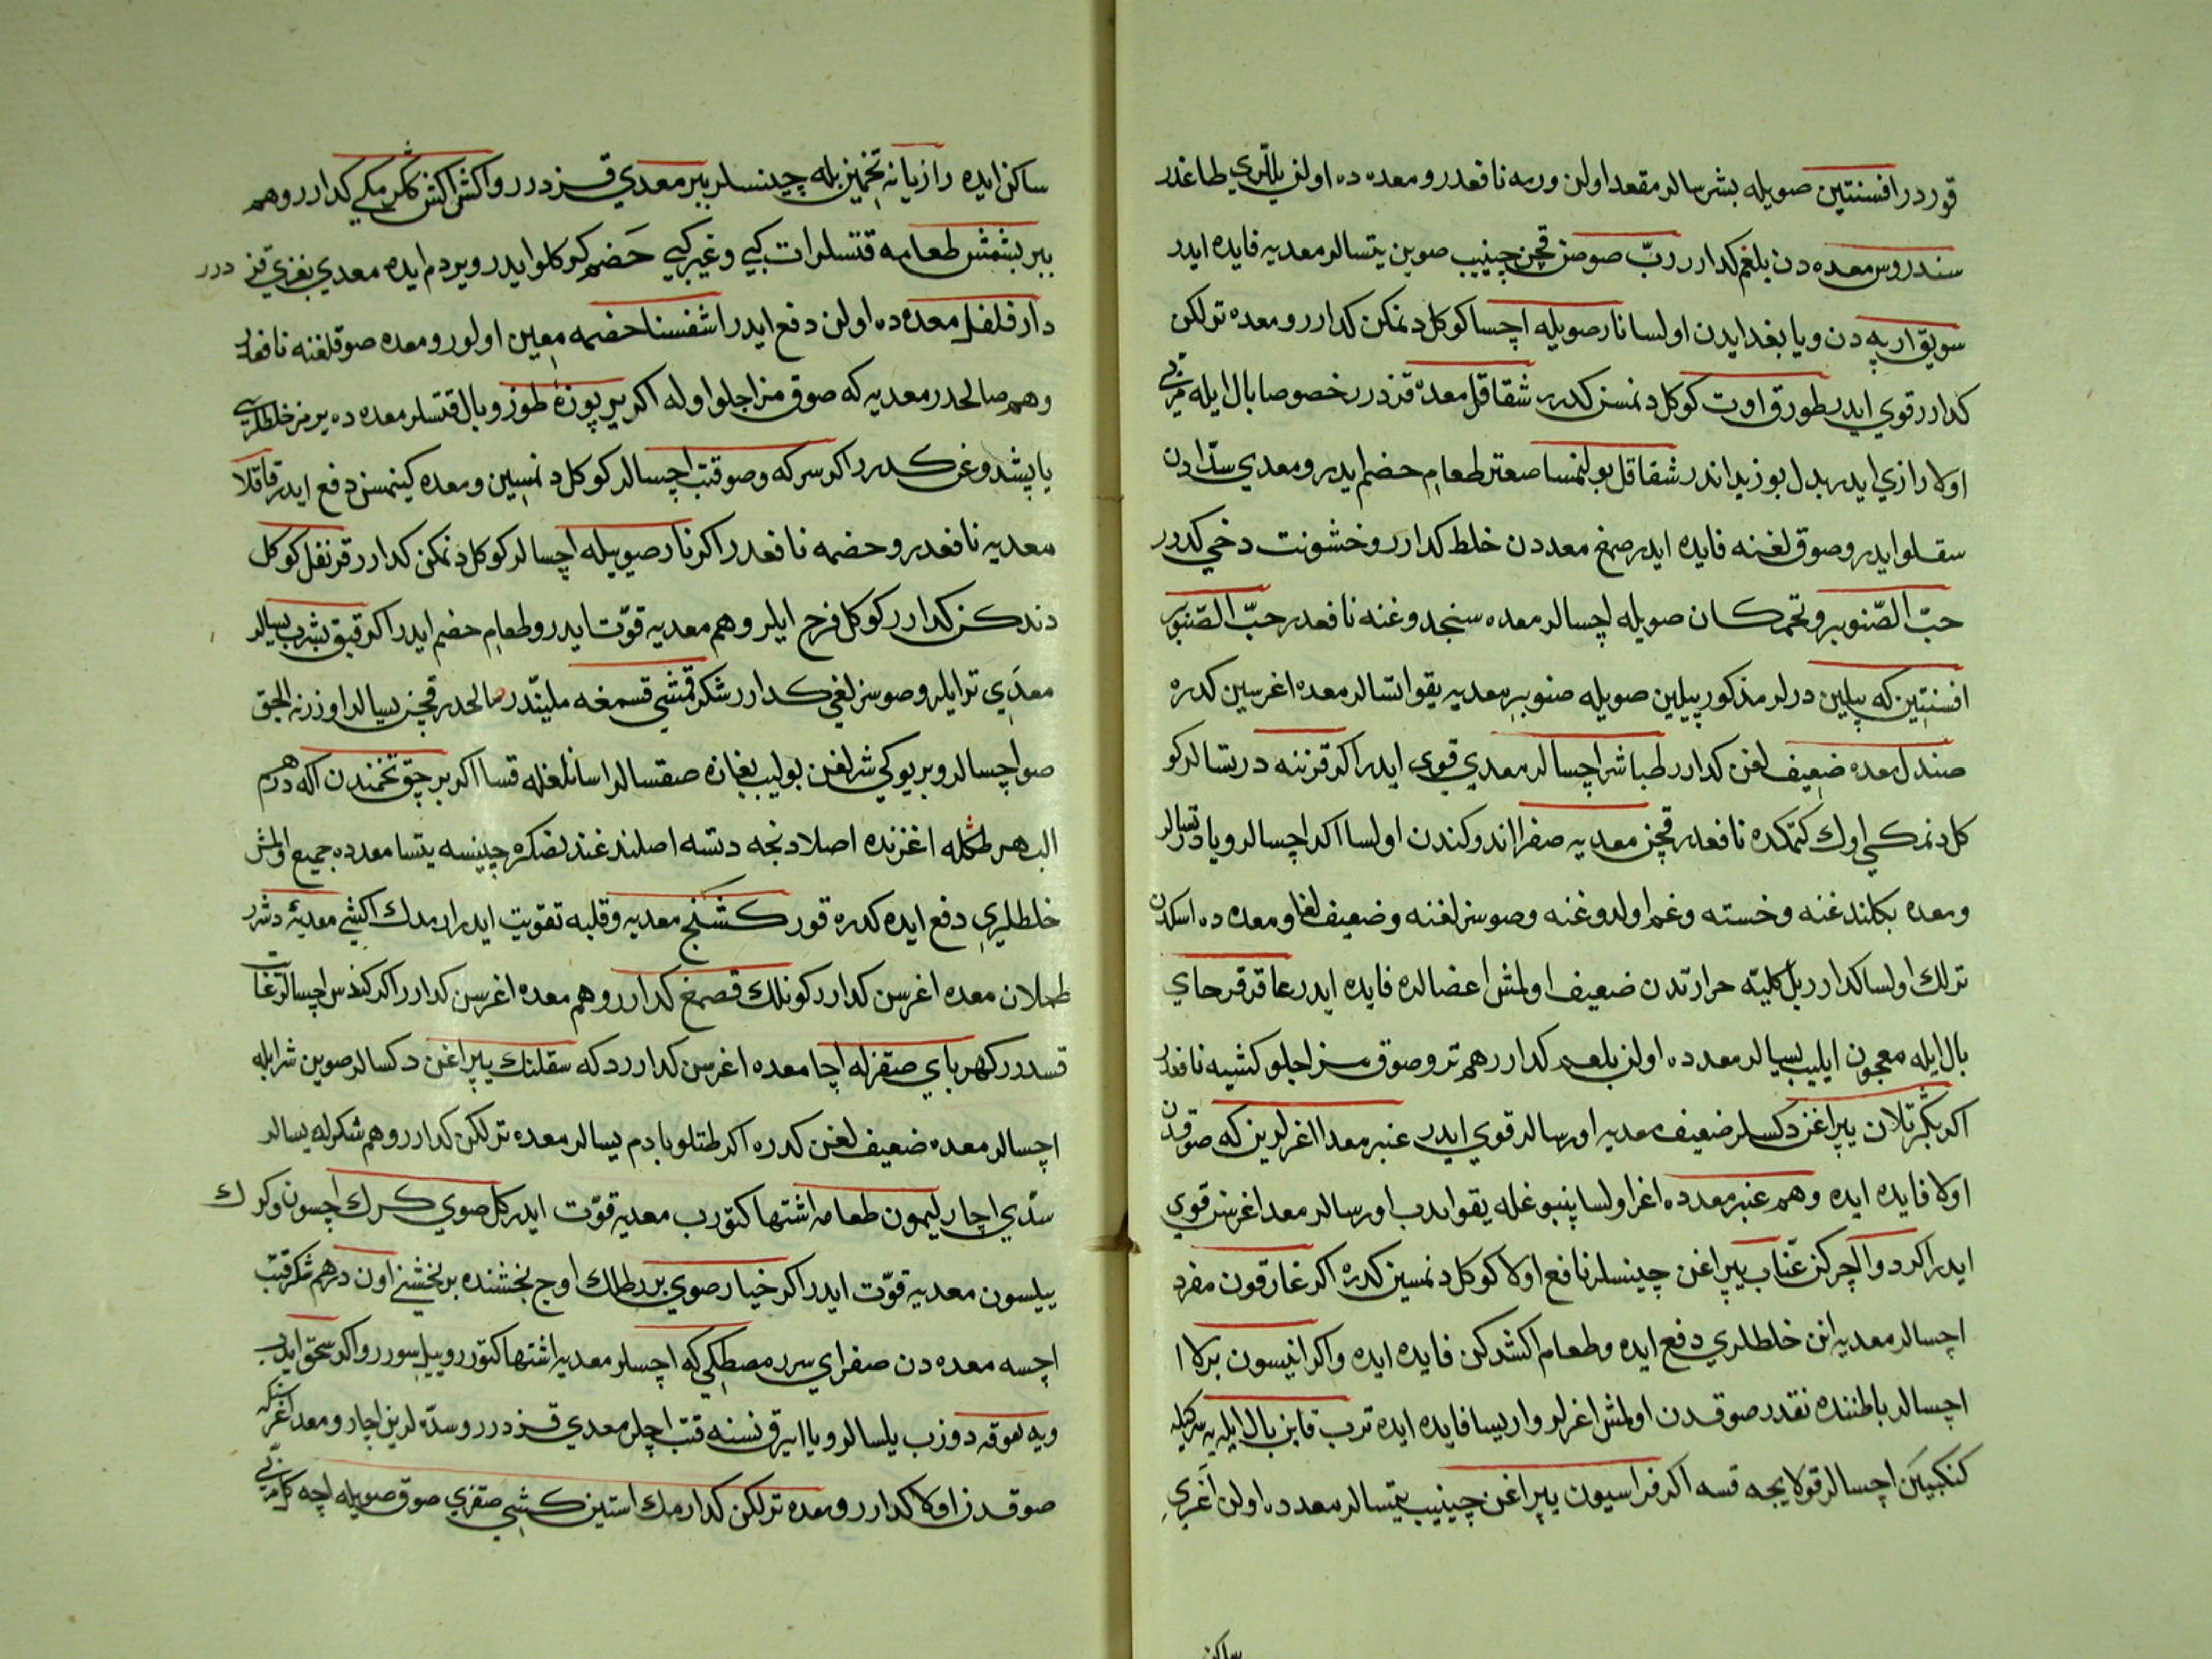 قورد در افسنتين صويله بشرسالر مقعد اولن ورمه نافعدر و معده ده اولن يللري طاغدر
سندروس معده دن بلغم كدارر ربّ صوصن قچن چينيب صوين يتسالر معديه فايده ايدر
سويق ارپه دن ويا بغدايدن اولسا نار صويله اچسا كوكل دنمكن كدارر و معده ترلكن
كدارر قوي ايدر طورق اوت كوكل دنمسن كدرر شقاقل معده قزدرر خصوصا بال ايله
اولا رازي ايدر بدل بوزيداندر شقاقل بولنمسا صعتر طعامِ حضم ايدر و معدي سدّادن
سقلو ايدر و صوقلغنه فايده ايدر صمغ معددن خلط كدارر و خشونت دخي كدرر
حبّ الصّنوبر و تخم كتان صويله اچسالر معده سنجدوغنه نافعدر حبّ الصّنوبر
افسنتين كه پيلين درلر مذكور پيلين صويله صنوبر معديه يقو اتسالر معده اغرسين كدره
صندل معده ضعيفلغن كدارر طباشر اچسالر معدي قوي ايدر اكر قرننه درتسالر كو
كل دنمكي اوك كتمكده نافعدر قچن معديه صفرا اندوكندن اولسا اكر اچسالر ويا درتسالر
و معده بكلندغنه و خسته و غم اولدوغنه و صوسزلغنه و ضعيفلغا و معده ده اسكدن
ترلك اولسا كدارر بل كليّه حرارتدن ضعيف اولمش اعضالره فايده ايدر عاقرقرحاي
بال ايله معجون ايليب يسالر معدده اولن بلغم كدارر هم تر و صوق مزاجلو كشيه نافعدر
اكر بكرتلان يپراغن دكسلر ضعيف معديه اورسالر قوي ايدر عنبر معدا اغرلرين كه صوقدن
اولا فايده ايده و هم عنبر معدده اغر اولسا پنبوغله يقو ايدب اورسالر معدا اغرسن قوي
ايدر اكر دوالچركن عنّاب يپراغن چينسلر نافع اولا كوكل دنمسين كدره اكر غارقون مفرد
اچسالر معديه انن خلطلري دفع ايده و طعام اكشدكن فايده ايده واكر انيسون بركلا
اچسالر باطننده نقدر صوقدن اولمش اغرلر وارايسا فايده ايده ترب قاينب بال ايله يه سركيله
كنكبيَن اچسالر قولايجه قسه اكر فراسيون يپراغن چينيب يتسالر معدده اولن اغري
ساكن
ساكن ايده رازيانه تخمين بله چينسلر ببر معدي قزدرر واكش اكش ككرمكي كدارر و هم
ببر بشمش طعامه قتسلر ات كبي و غير كبي حضم كوكلو ايدر و يردم ايده معدي بغزي قزدرر
دارفلفل معده ده اولن دفع ايدر اشفسنا حضمه معين اولور و معده صوقلغنه نافعدر
و هم صالحدر معديه كه صوق مزاجلو اوله اكر بر پوزۀ طوز و بال قتسلر معده ده يرمز خلطلري
ياپشدوغن كدرر اكر سركه و صوقتب اچسالر كوكل دنمسين و معده كينمسن دفع ايدر قاقلا
معديه نافعدر و حضمه نافعدر اكر نار صويبله اچسالر كوكل دنمكن كدارر قرنفل كوكل
دندكن كدارر كوكل فرح ايلر و هم معديه قوّت ايدر و طعام حضم ايدر اكر قبق بشرب يسالر
معدي تر ايلر و صوسزلغي كدارر شكر قمشي قسمغه مليندر صالحدر قچن يسالر اوزرنه الجق
صو اچسالر و بر يوكي شرلغن بوليب بغازه صقسالر اسانلغله قسا اكر بر چق تخمندن اكه درهم
البهر طكله اغزنده اصلادنجه دتسه اصلندغندنصكره چينسه يتسا معدده جميع اولمش
خلطلري دفع ايده كدره قورد كشنج معديه و قلبه تقويت ايدر ارمدك اكشي معديۀ دشرر
طحلان معده اغرسن كدارر كونلك قصمغ كدارر و هم معده اغرسن كدارر اكر كندس اچسالر
قسدرر كهرباي صقزله اچا معده اغرسن كدارر دكه سقلنك يپراغن دكسالر صوين شرابله
اچسالر معده ضعيفلغن كدره اكر طتلو بادم يسالر معده ترلكن كدارر و هم شكرله يسالر
سدّي اچار ليمون طعامه اشتها كتورب معديه قوّت ايدر كل صوي كرك اچسون و كرك
ييلسون معديه قوّت ايدر اكر خيار صوي بر رطلك اوج بخشنده بر بخشنى اون درهم شكر قتب
اچسه معده دن صفراي سرر مصطكي كه اچسلر معديه اشتها كتورر و ييلسورر واكر سحق ايدب
ويه لعوقه دوزب يلسالر ويا ايرق نسنه قتب اچلر معدي قزدرر و سدّه لرين اچار و معد اغرسن كه
صوقدن اولا كدارر و معده ترلكن كدارر مك استين كشي صقزي صوق صويله اچه